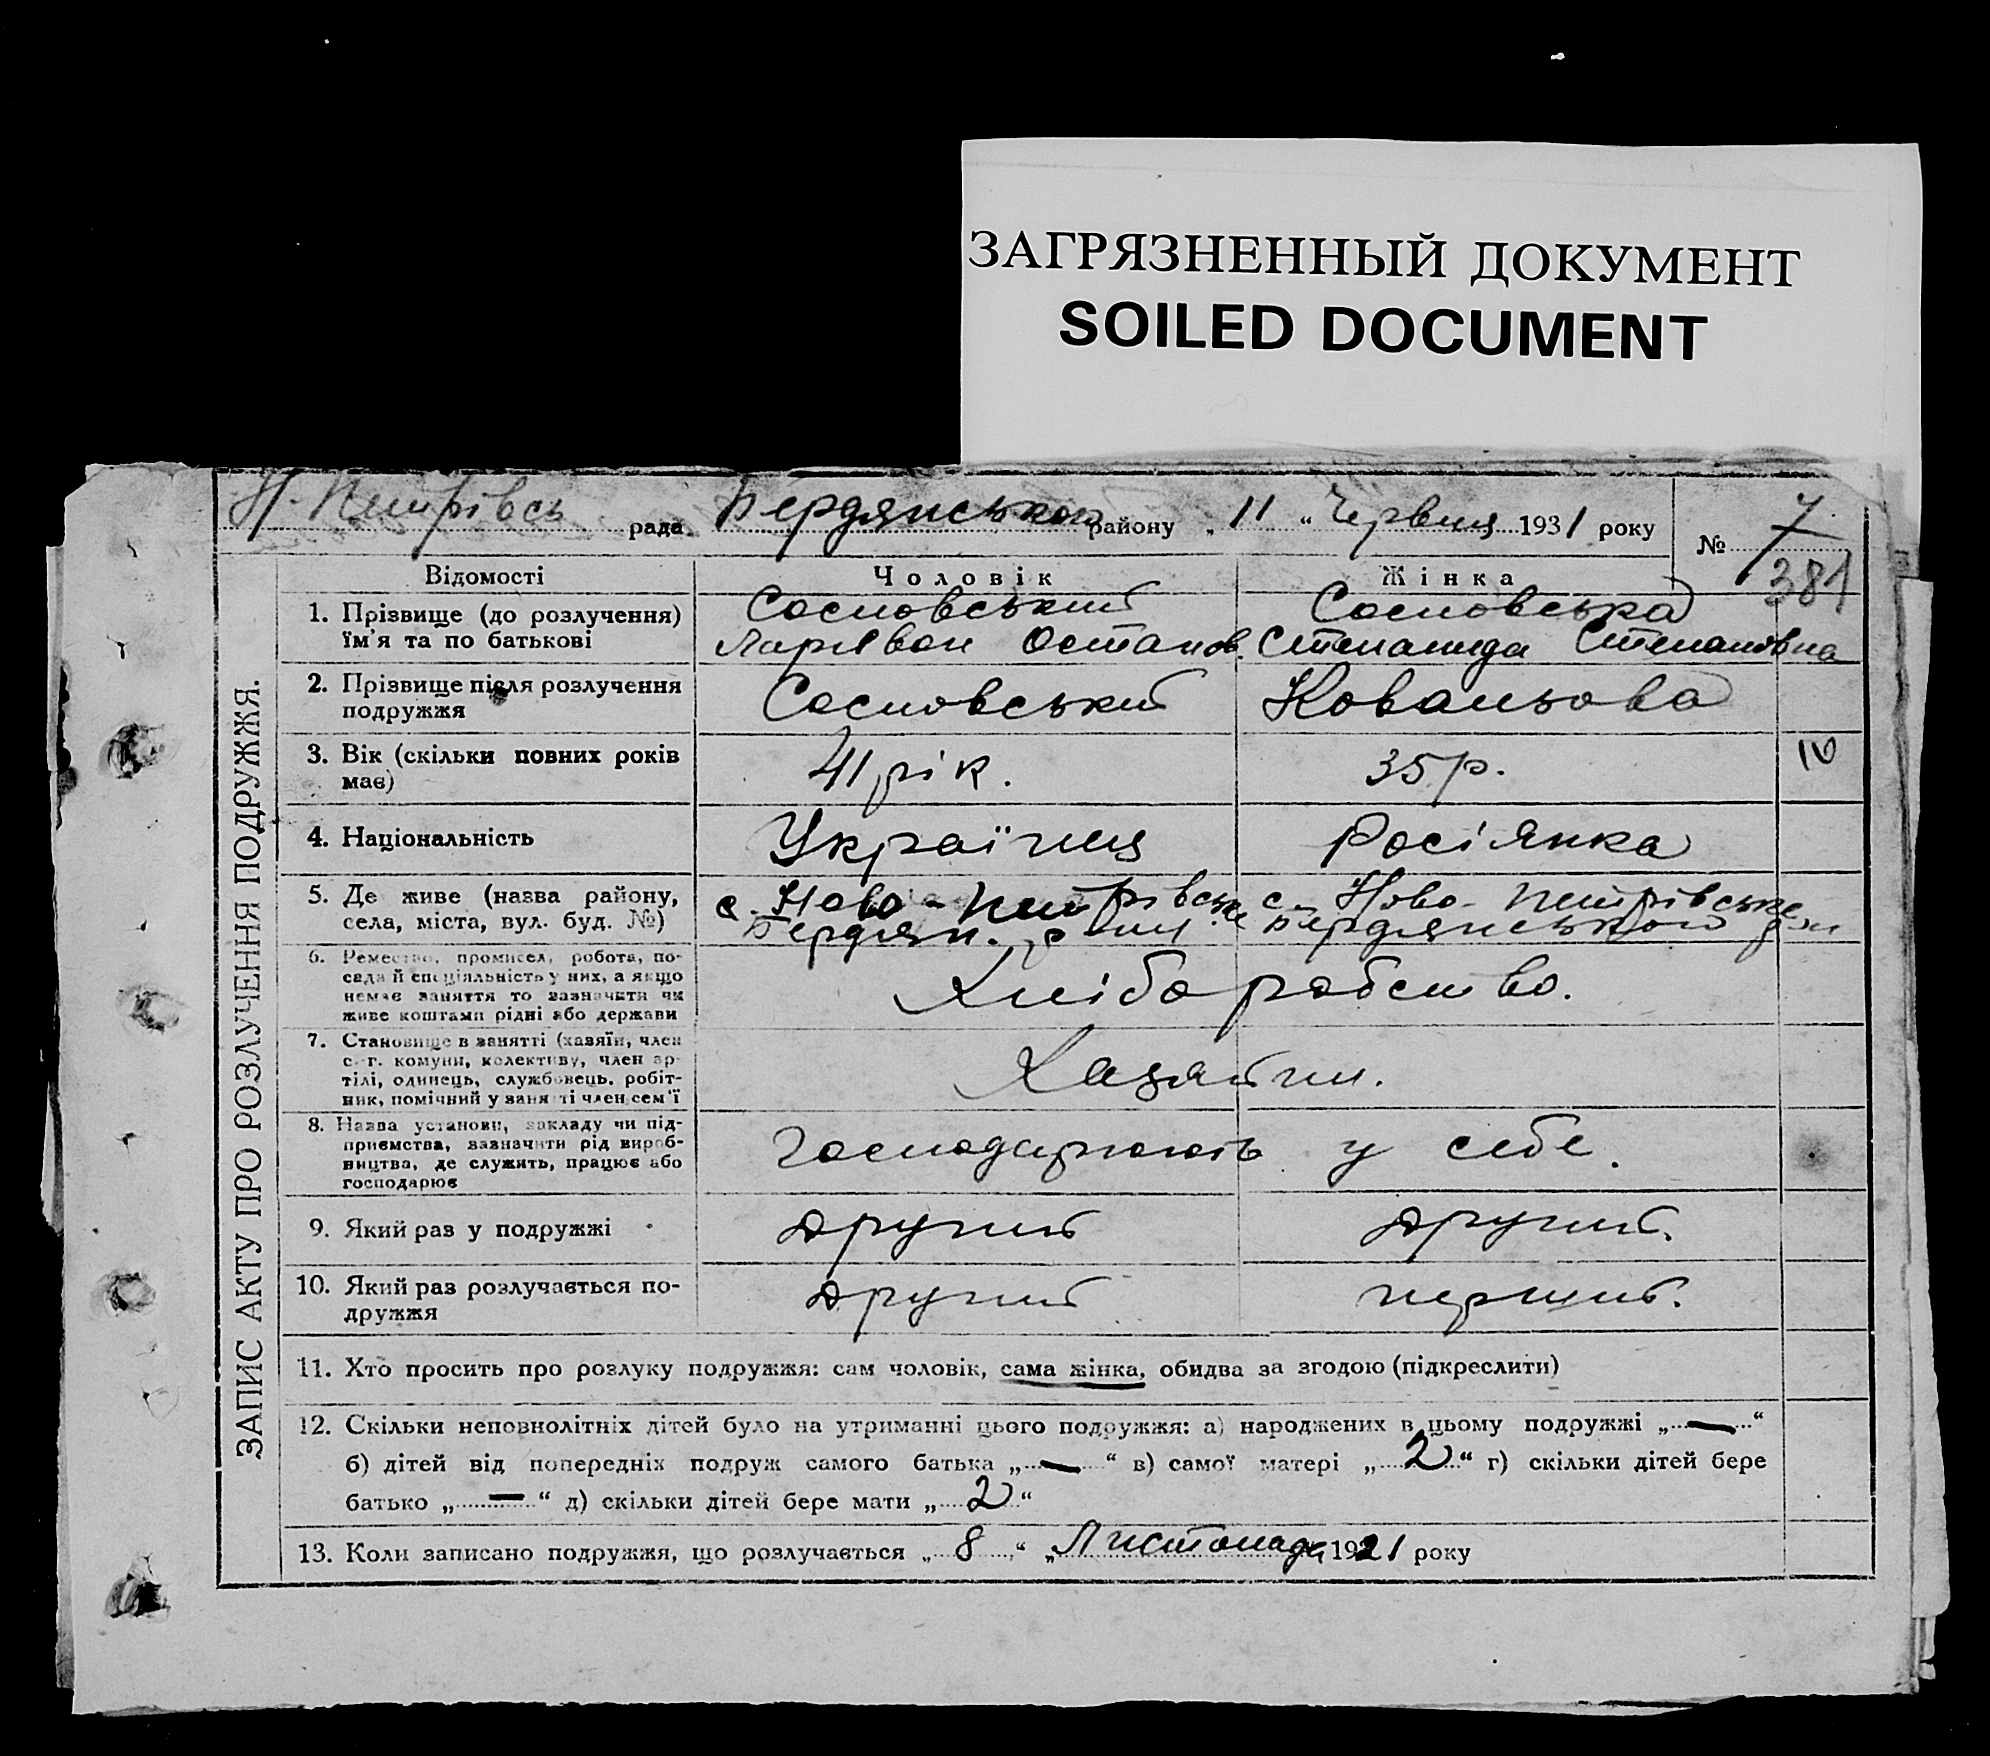 ЗАГРЯЗНЕННЫЙ ДОКУМЕНТ
SOILED DOCUMENT
Н. Петрівсь рада Бердянського району „ 11 “ Червця 1931 року № 7
381
ЗАПИС АКТУ ПРО РОЗЛУЧЕННЯ ПОДРУЖЖЯ.
Відомості Чоловік Жінка
1. Прізвище (до розлучення) Сосновський Сосновська
їм'я та по батькові Ларівон Остапов. Степанида Степановна
2. Прізвище після розлучення Сосновський Ковальова
подружжя
3. Вік (скільки повних років 41 рік. 35 р.
має)
4. Національність Українец Росіянка
5. Де живе (назва району, с. Ново-Петрівське с. Ново-Петрівське
села, міста, вул. буд. №) Бердян. рону. Бердянського р-н
6. Ремество, промисел, робота, по-
сада й спеціяльність у них, а якщо Хліборобство.
немає заняття то зазначити чи
живе коштами рідні або держави
7. Становище в занятті (хазяїн, член
с.-г. комуни, колективу, член ар- Хазяїни.
тілі, одинець, службовець, робіт-
ник, помічний у занятті член сем'ї
8. Назва установи, закладу чи під-
приємства, зазначити рід вироб- Господарюють у себе.
ництва, де служить, працює або
господарює
9. Який раз у подружжі другий другий.
10. Який раз розлучається по- другий перший.
дружжя
11. Хто просить про розлуку подружжя: сам чоловік, сама жінка, обидва за згодою (підкреслити)
12. Скільки неповнолітніх дітей було на утриманні цього подружжя: а) народжених в цьому подружжі „ — “
б) дітей від попередніх подруж самого батька „ — “ в) самої матері „ 2 “ г) скільки дітей бере
батько „ — “ д) скільки дітей бере мати „ 2 “
13. Коли записано подружжя, що розлучається „ 8 “ „ Листопада 1921 року